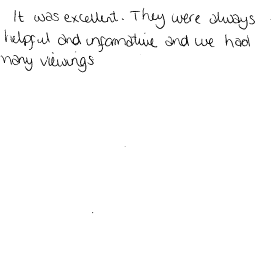 It was excellent. They were always
helpful and informative and we had
many viewings